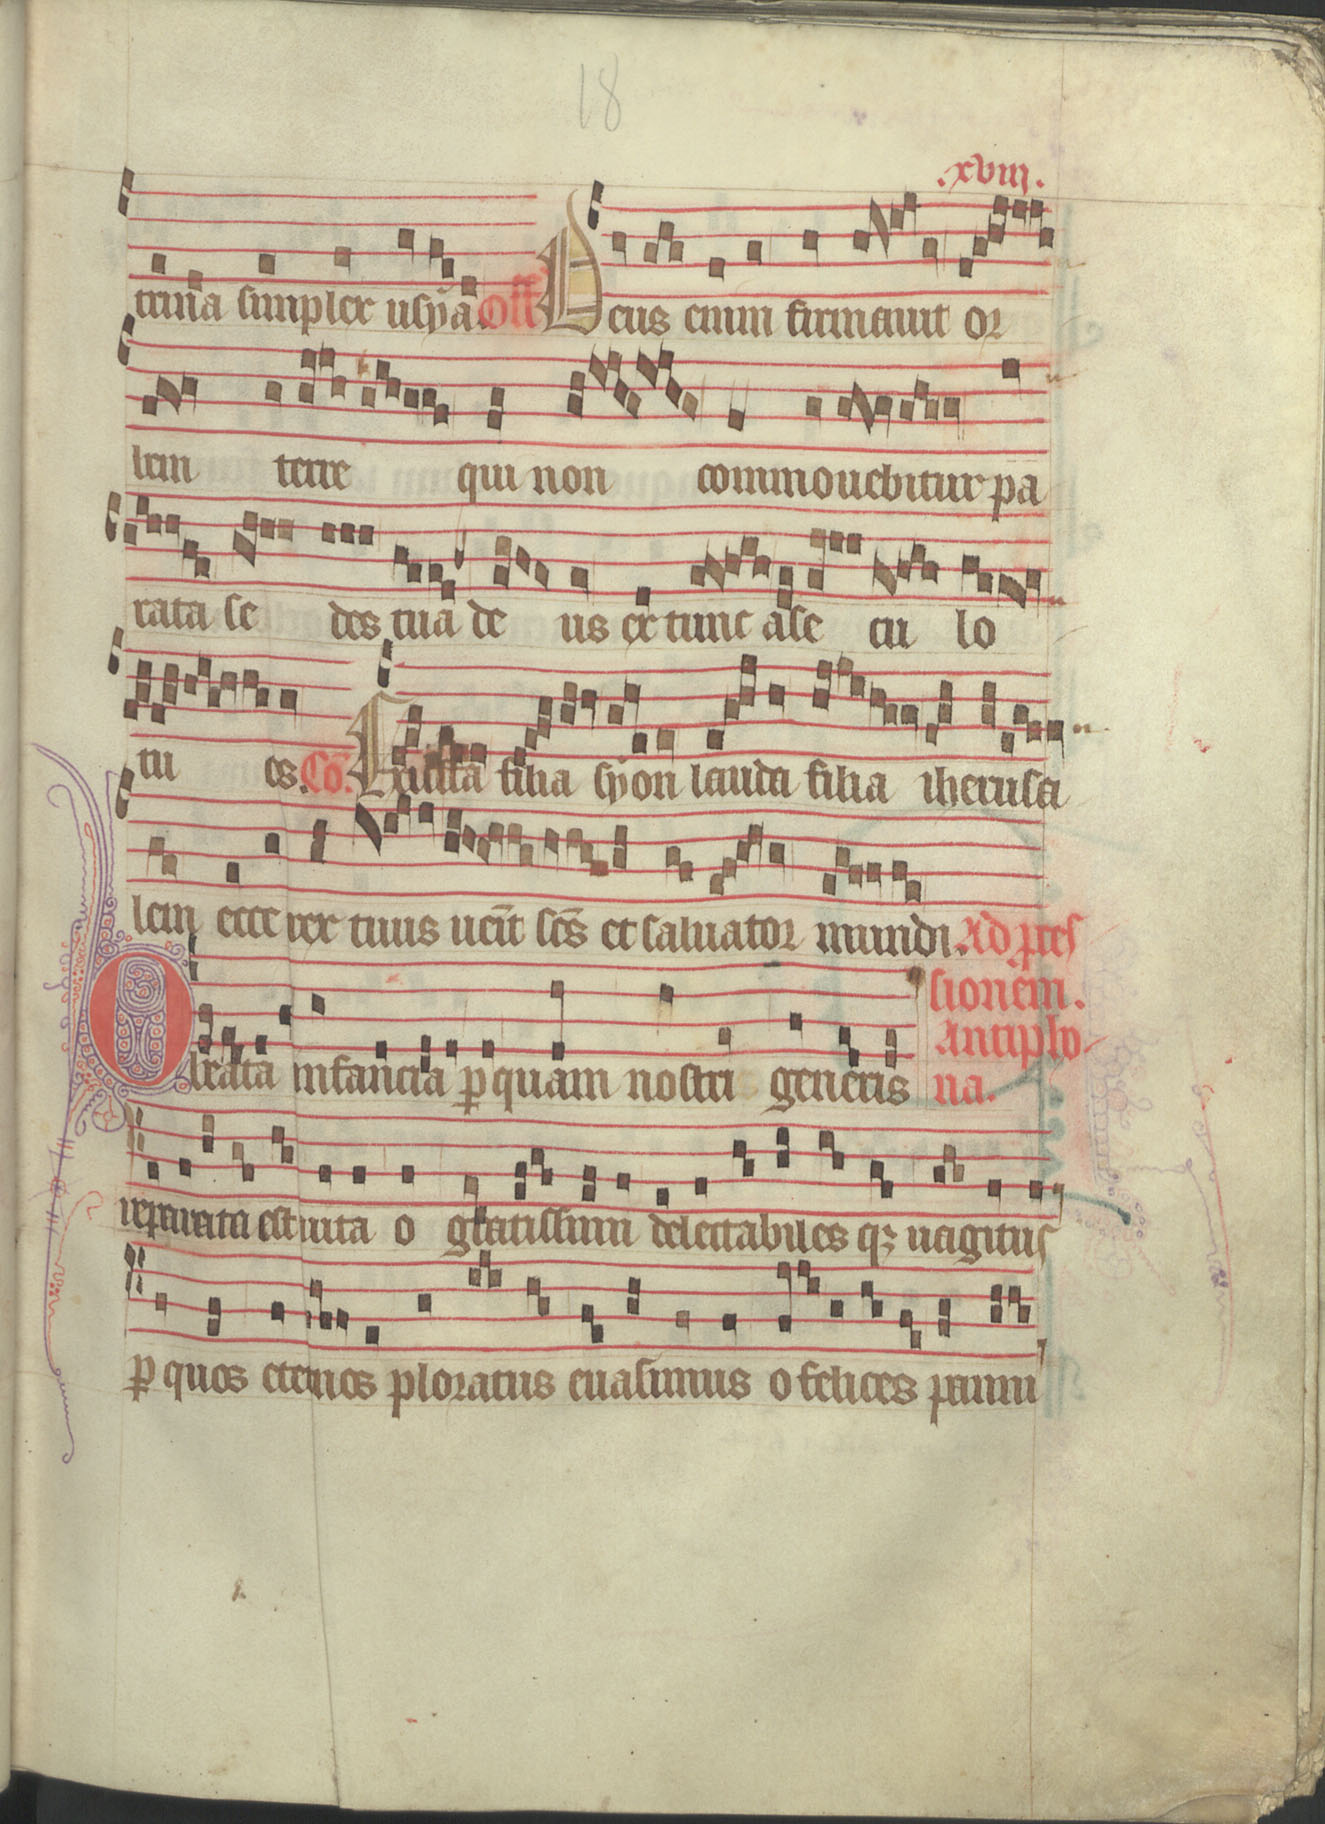 18
.xviii.
trina simplex usya Off Deus enim firmauit or
bem terre qui non commouebitur pa
rata se des tua de us ex tunc a se cu lo
tu es. Cō. Exulta filia syon lauda filia iherusa
lem ecce rex tuus uenit scs et saluator mundi. Ad p̄ces
sionem.
Antipho
na.
O beata infancia ꝑ quam nostri generis
reparata est uita o gratissimi delectabiles qꝫ uagitus
ꝑ quos eternos ploratus euasimus o felices panni